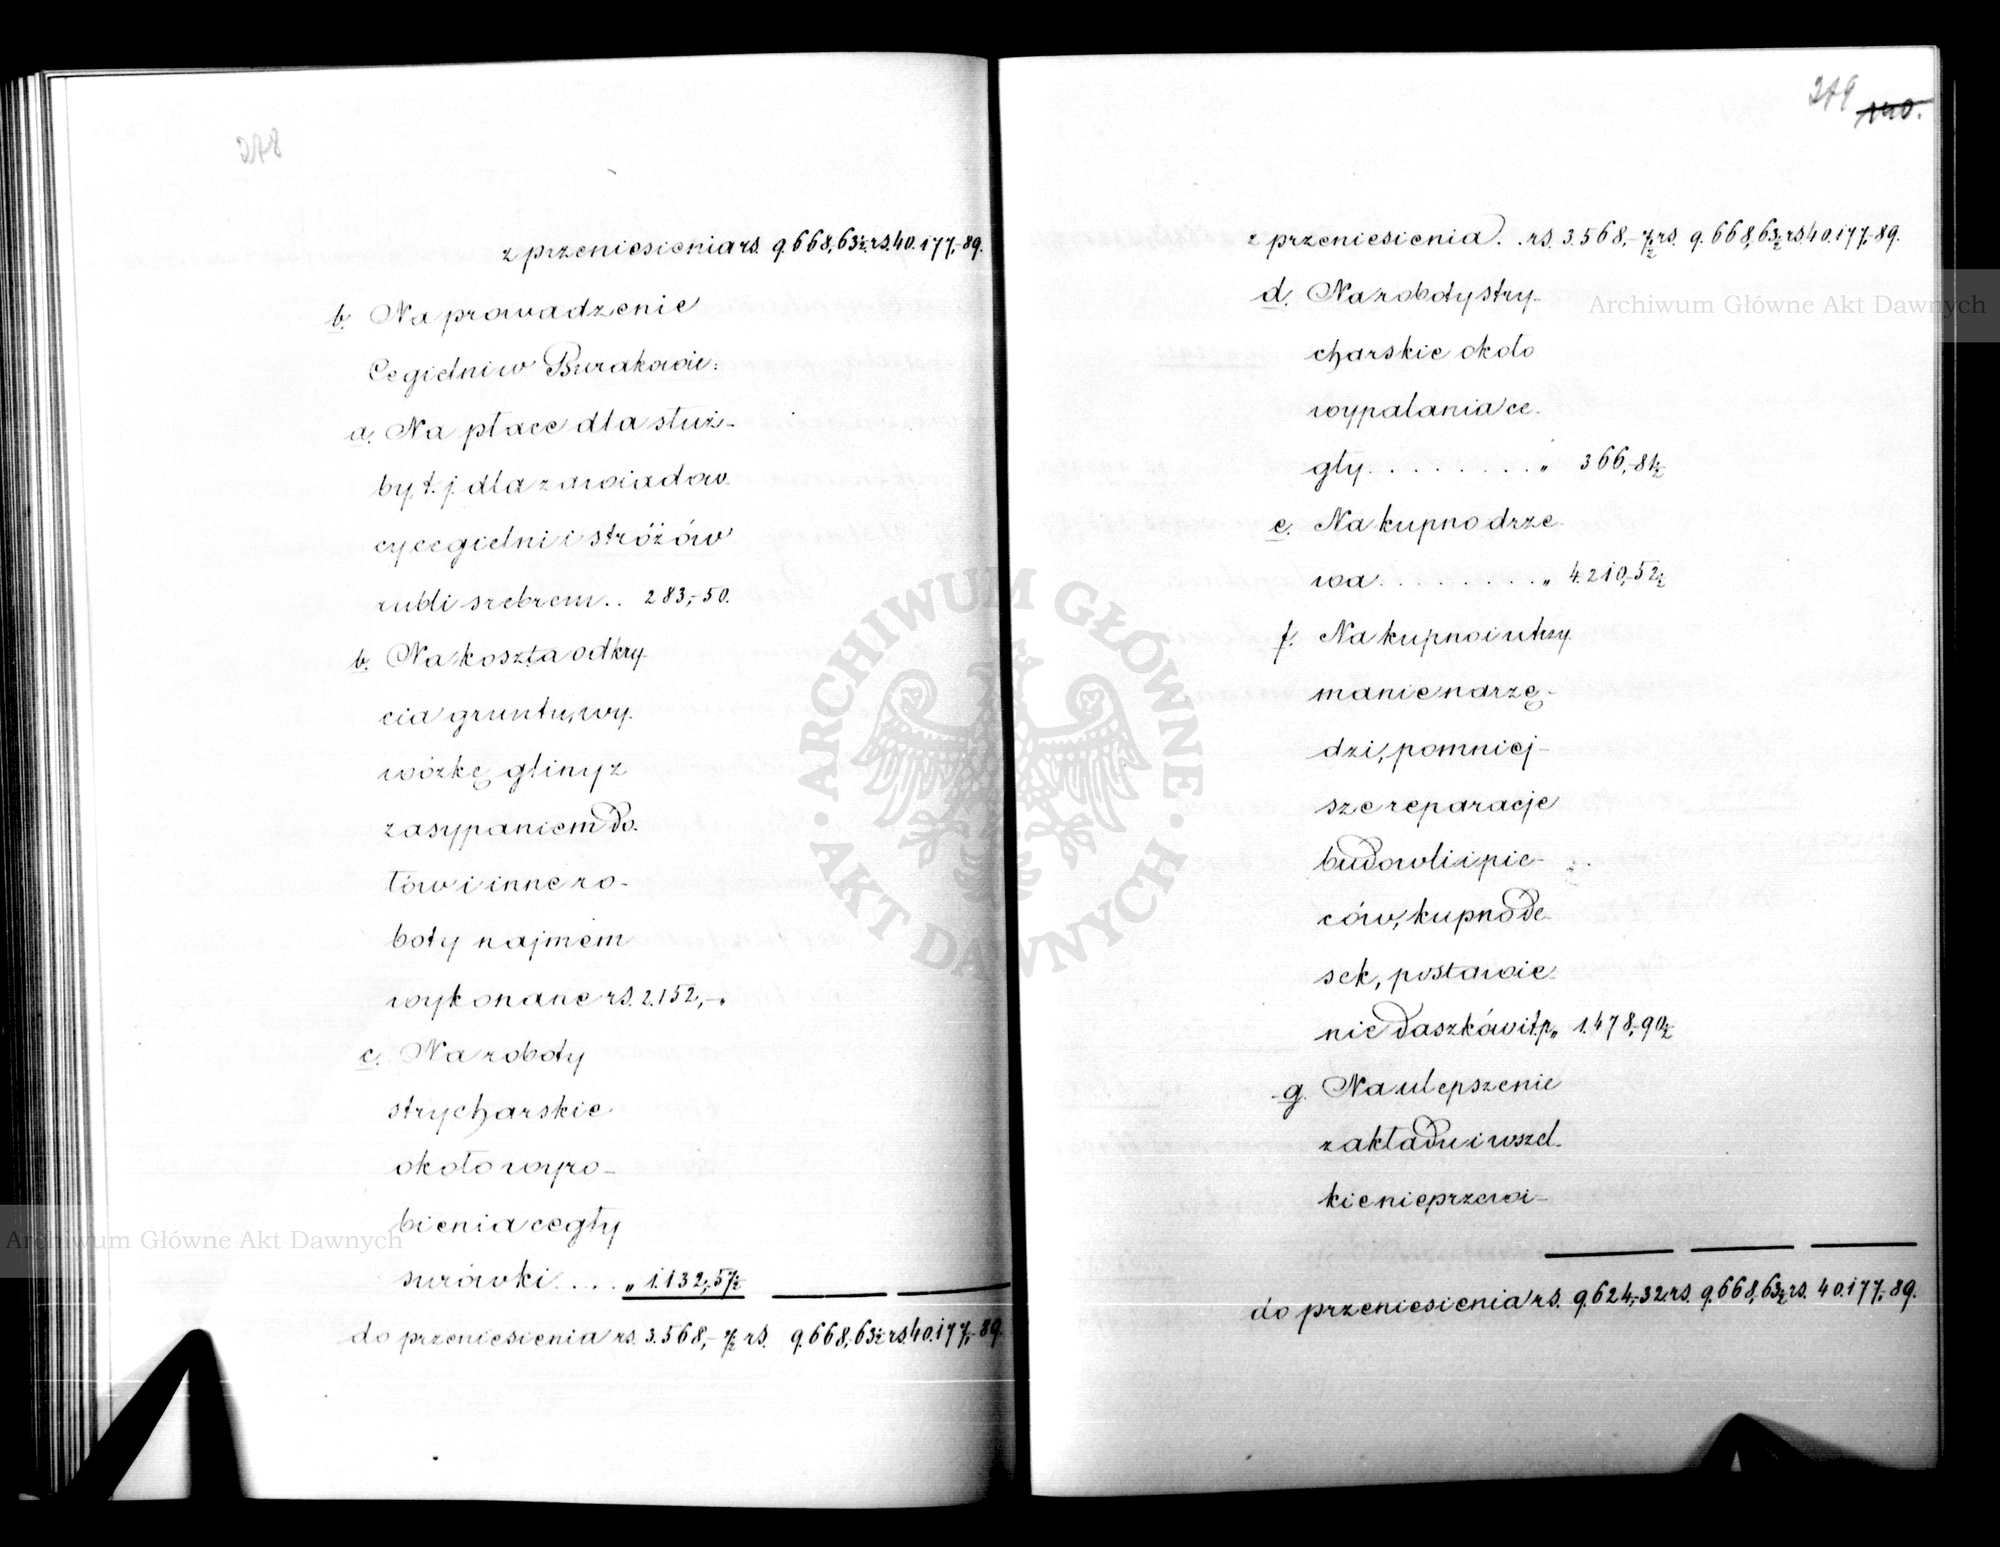 278
z przeniesienia rs. 9.668,63½ rs. 40.177,-89.
b. Na prowadzenie
Cegielni w Burakowie:
a. Na płace dla służ-
by, t. j. dla zawiadow-
cy cegielni i stróżów
rubli srebrem .. 283,-50.
b. Na koszta odkry-
cia gruntu, wy-
wózkę gliny z
zasypaniem do-
łów i inne ro-
boty najmem
wykonane rs. 2.152,-„
c. Na roboty
strycharskie
około wyro-
bienia cegły
surówki .... „ 1.132,-57½
do przeniesienia rs. 3.568,-7½ rs. 9.668,63½ rs. 40.177,-89.
279 140.
z przeniesienia . . rs. 3.568,-7½ rs. 9.668,63½ rs. 40.177,-89.
d. Na roboty stry-
charskie około
wypalania ce-
gły . . . . . . . . „ 366,-81½
e. Na kupno drze-
wa . . . . . . . . „ 4.210,-52½
f. Na kupno i utrzy-
manie narzę-
dzi, pomniej-
sze reparacje
budowli i pie-
ców, kupno de-
sek, postawie-
nie daszków i t.p. „ 1.478,-90½
g. Na ulepszenie
zakładu i wszel-
kie nieprzewi-
do przeniesienia rs. 9.624,-32. rs. 9.668,63½ rs. 40.177,-89.
Archiwum Główne Akt Dawnych
Archiwum Główne Akt Dawnych
· ARCHIWUM GŁÓWNE · AKT DAWNYCH